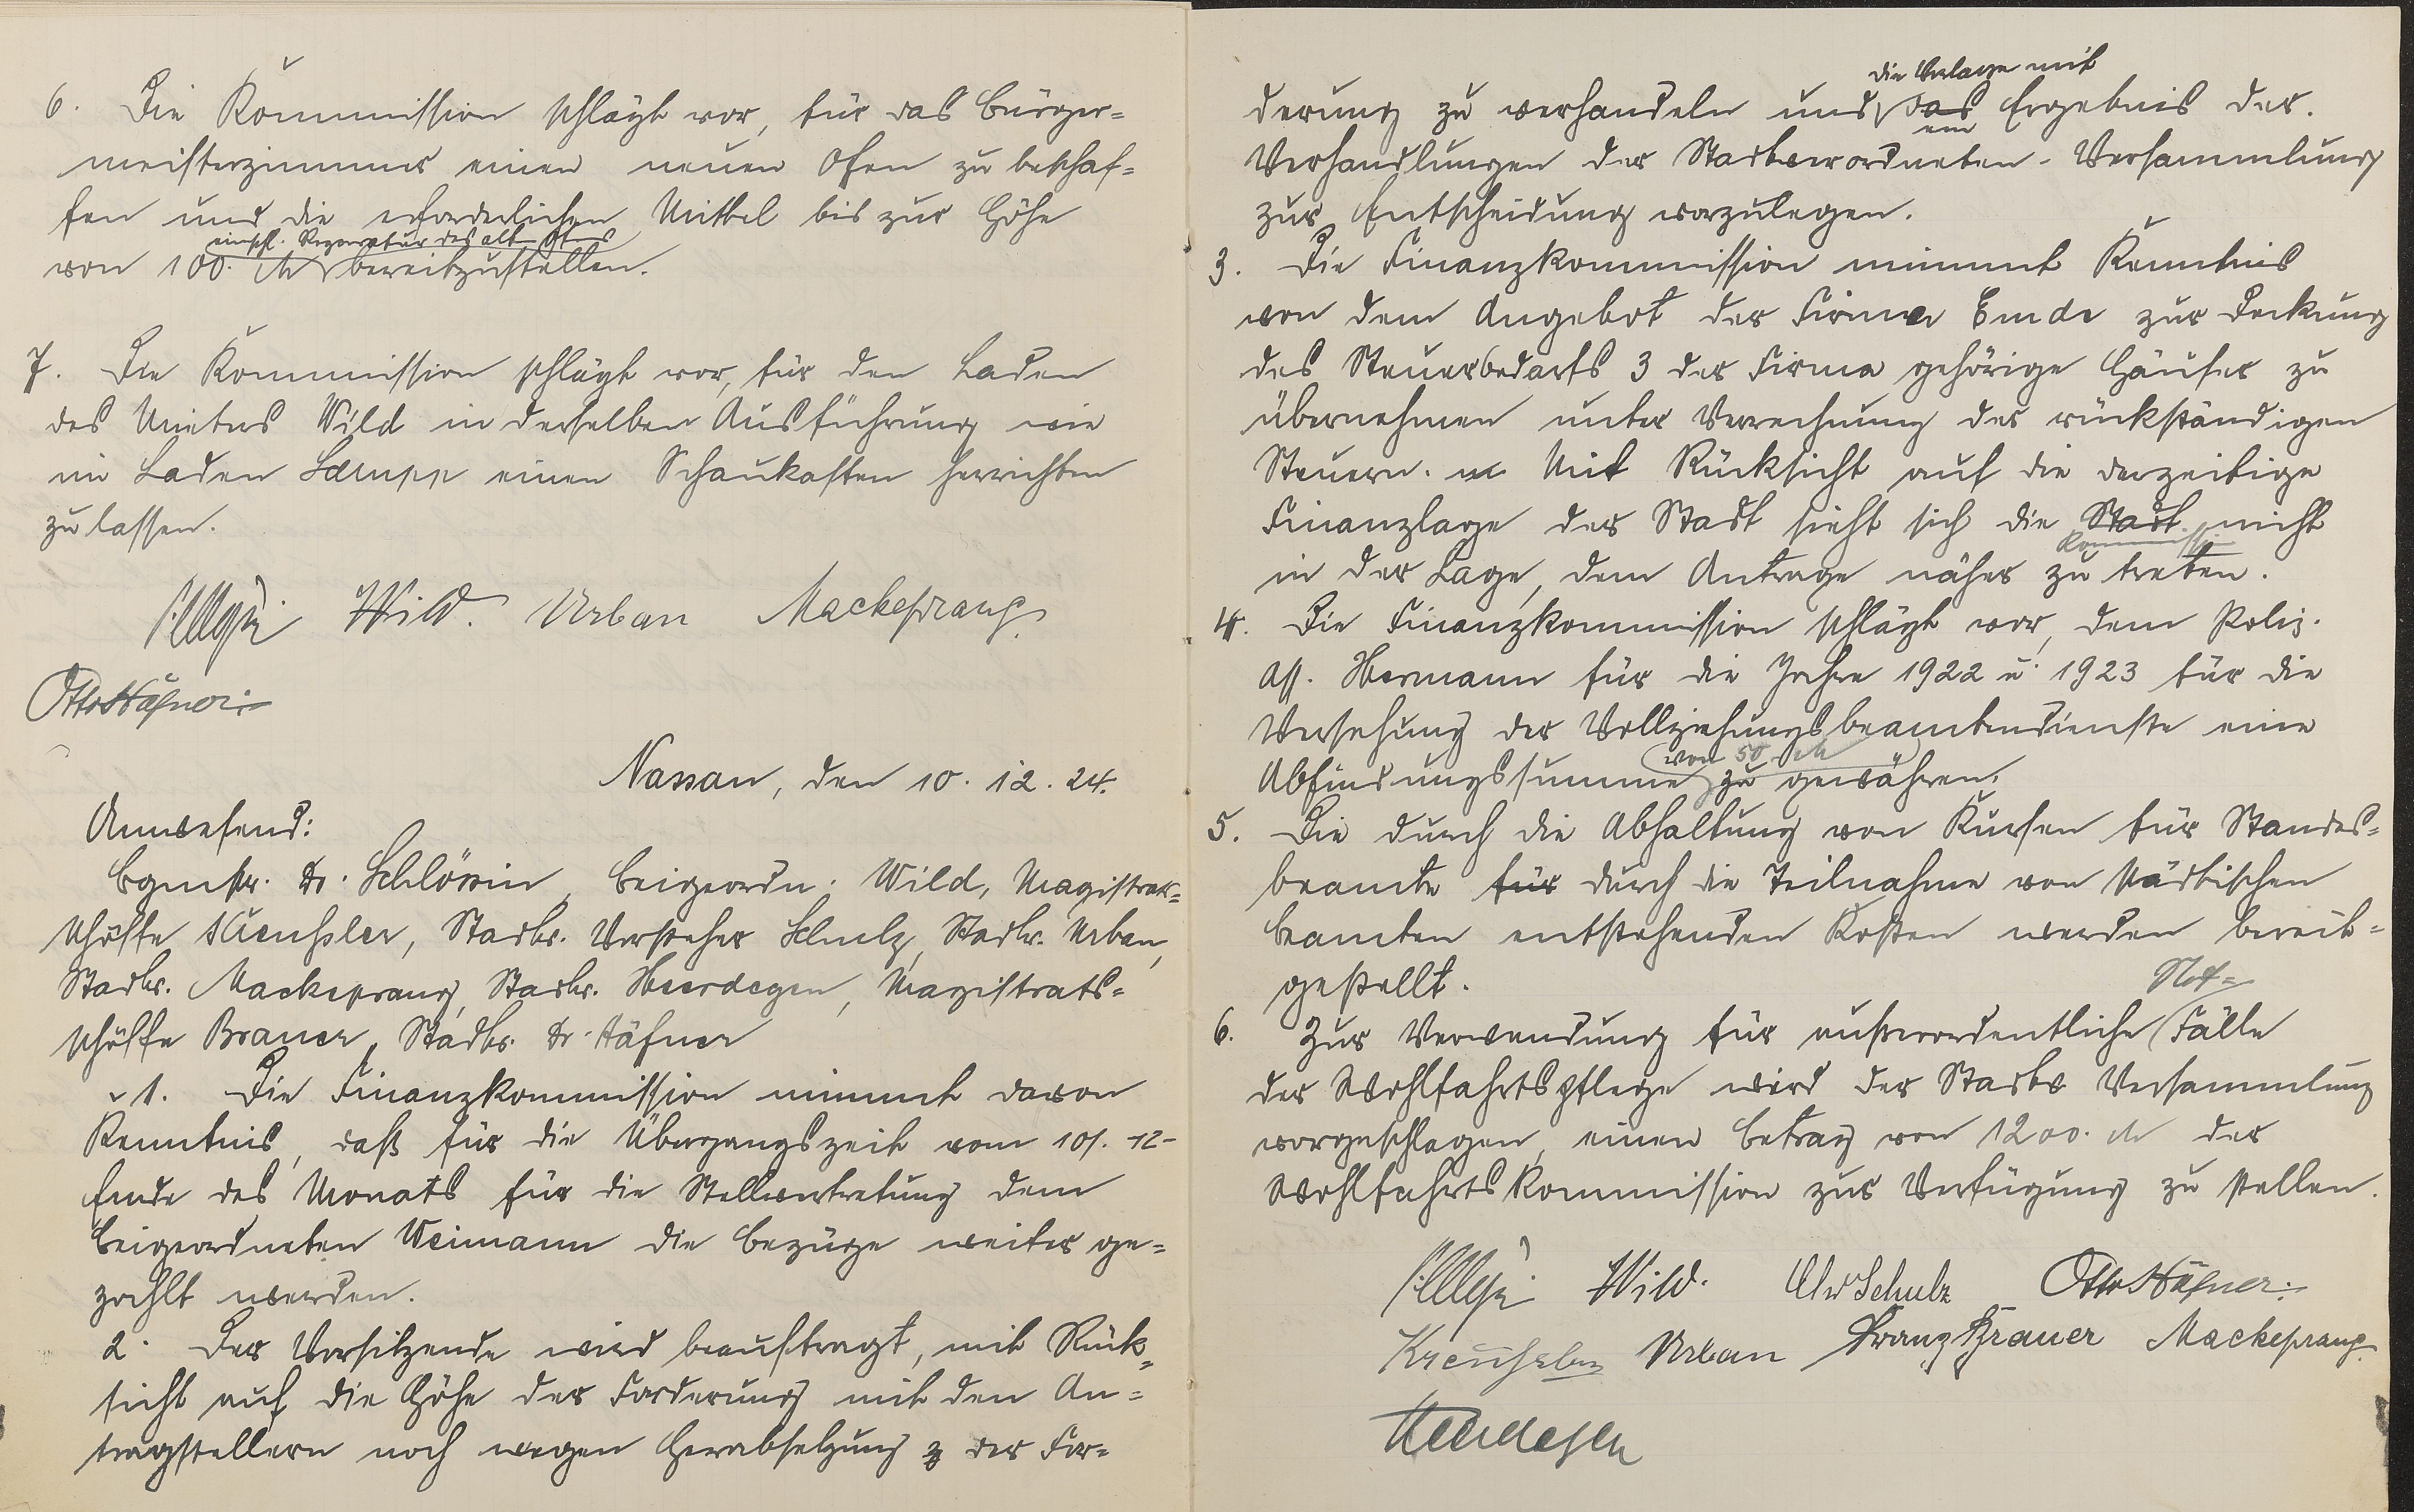 6. Die Kommission schlägt vor, für das Bürger=
meisterzimmer einen neuen Ofen zu beschaf=
fen und die erforderlichen Mittel bis zur Höhe
einschl. Reparatur des alt. Ofens
von 100. M bereitzustellen.
7. Die Kommission schlägt vor, für den Laden
des Mieters Wild in derselben Ausführung wie
im Laden einen Schaukasten herrichten
zu lassen.
Wild. Urban Mackeprang
Otto Häfner
Nassau, den 10. 12. 24.
Anwesend:
Bgmstr. Dr. Beigeordn. Wild, Magistrats=
schöffe Kreuhsler, Stadtv. Vorsteher Schulz, Stadtv. Urban,
Stadtv. Mackeprang, Stadtv. Heerdegen, Magistrats=
schöffe Brauer, Stadtv. Dr. Häfner
1. Die Finanzkommission nimmt davon
Kenntnis, daß für die Übergangszeit vom 10. 12-
Ende des Monats für die Stellvertretung dem
Beigeordneten Weimann die Bezüge weiter ge=
zahlt werden.
2. Der Vorsitzende wird beauftragt, mit Rück=
sicht auf die Höhe der Forderung mit den An=
tragstellern noch wegen Herabsetzung z der For=
die Vorlage mit
derung zu verhandeln und das Ergebnis der
em
Verhandlungen der Stadtverordneten-Versammlung
zur Entscheidung vorzulegen.
3. Die Finanzkommission nimmt Kenntnis
von dem Angebot der Firma Emde zur Deckung
des Steuerbedarfs 3 der Firma gehörige Häuser zu
übernehmen unter Verrechnung der rückständigen
Steuern. Mit Rücksicht auf die derzeitige
Finanzlage der Stadt sieht sich die Stadt nicht
Kommission
in der Lage, dem Antrage näher zu treten.
4. Die Finanzkommission schlägt vor, dem Poliz.
Ass. Hermann für die Jahre 1922 u. 1923 für die
Versehung der Vollziehungsbeamtendienste eine
von 50 M
Abfindungssumme zu gewähren.
5. Die durch die Abhaltung von Kursen für Standes=
beamte für durch die Teilnahme von städtischen
Beamten entstehenden Kosten werden bereit=
gestellt.
Not=
6. Zur Verwendung für außerordentliche Fälle
der Wohlfahrtspflege wird der Stadtv Versammlung
vorgeschlagen, einen Betrag von 1200. M der
Wohlfahrtskommission zur Verfügung zu stellen.
Wild. Schulz Otto Häfner
Kreuhsler Urban Franz Brauer Mackeprang
Heerdegen